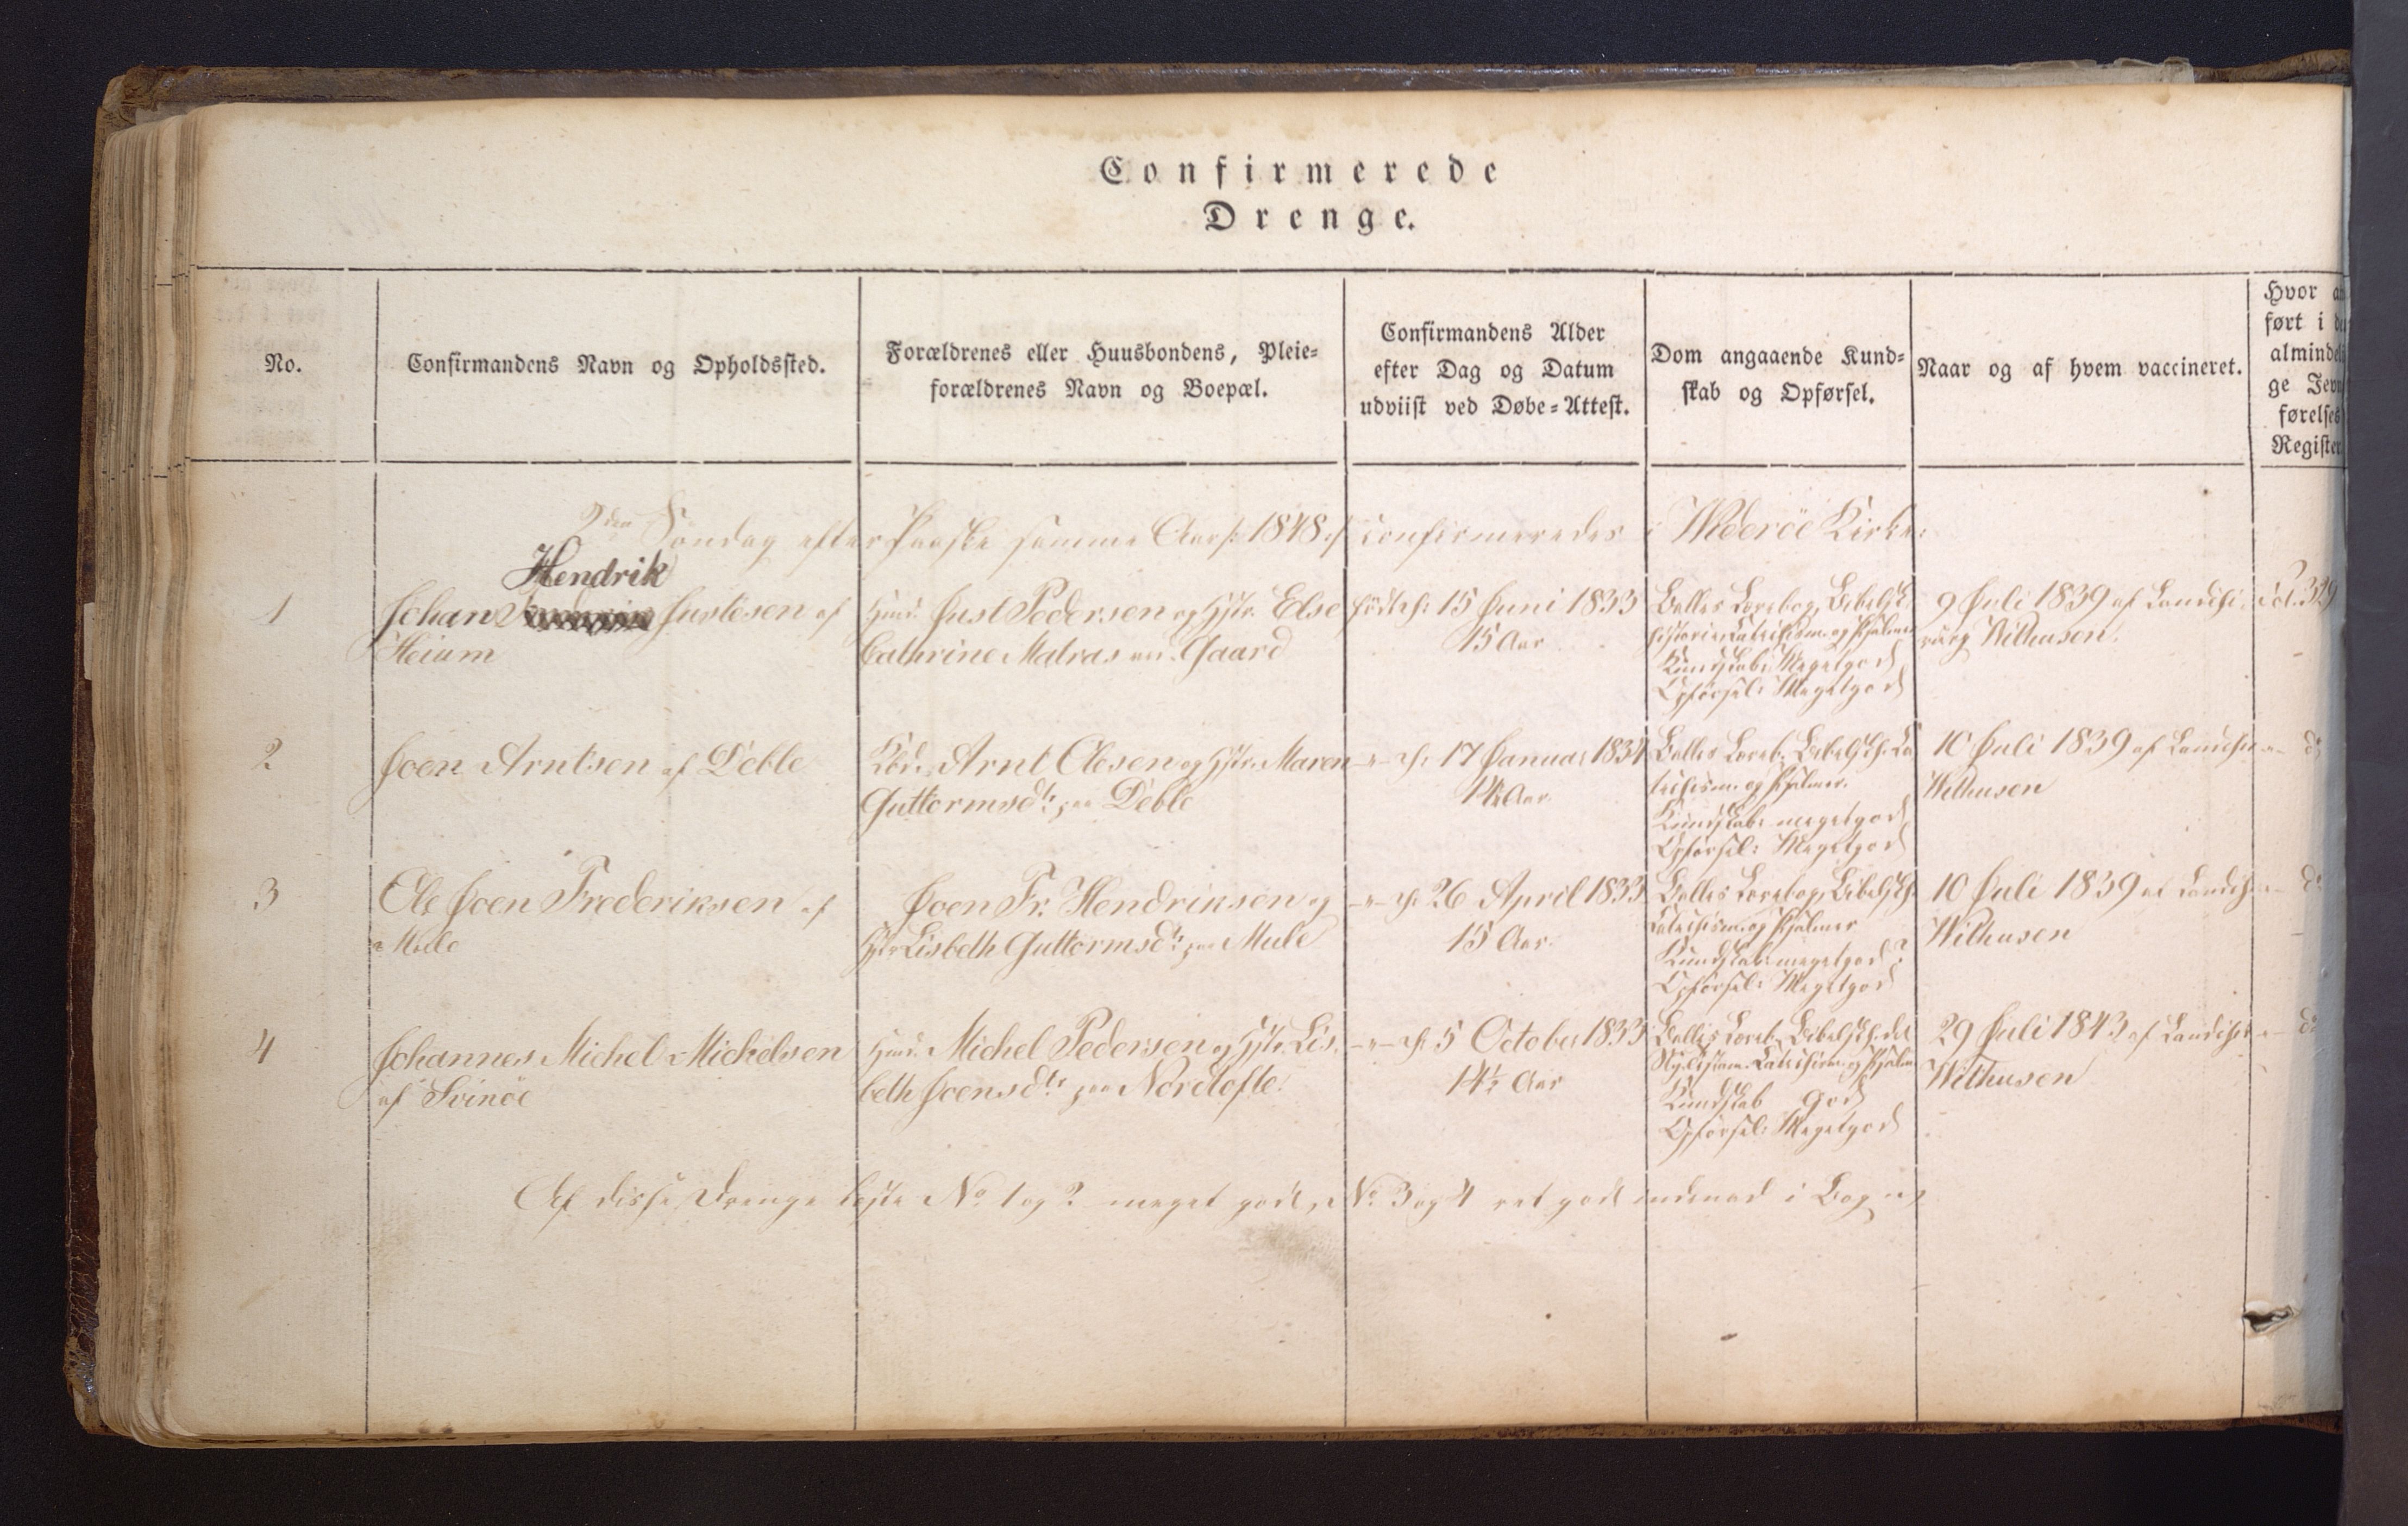 Confirmerede
Drenge.
No.
Confirmandens Navn og Opholdssted.
Forældrenes eller Huusbondens, Pleie=
forældrenes Navn og Boepæl.
Confirmandens Alder
efter Dag og Datum
udviist ved Døbe=Attest.
Dom angaaende Kund=
skab og Opførsel.
Naar og af hvem vaccineret.
Hvor
ført i
alminde
ge
førelses
Register
2den Søndag efter Paaske samme Aar 1848 confirmeredes i Wideröe Kirke:
Hendrik
1
Johan Justesen af
Heium
Just Pedersen og Hstr. Else
Cathrine Matras Gaard
födt 15 Juni 1833
15 Aar
Balles Lærebog, Bibelsk
historie, Katechism. og Psalmer
Kundskab: Megetgod
Opförsel: Megetgod
9 Juli 1839 af Landchi
rurg Wilhusen.
Fol. 329
2
Joen Arntsen af Deble
Arnt Olesen og Hstr. Maren
Guttormsdtr. paa Deble
17 Januar 1834
14 Aar
Balles Læreb. Bibelskh. Ka
techism. og Psalmer.
Kundskab: megetgod
Opförsel: Megetgod
10 Juli 1839 af Landchir
Wilhusen
do
3
Ole Joen Frederiksen af
Mule
Joen Fr. Hendriksen og
Hstr Lisbeth Guttormsdtr paa Mule
26 April 1833
15 Aar.
Balles Lærebog, Bibelskh.
Katechism. og Psalmer
Kundskab: megetgod?
Opförsel: Megetgod
10 Juli 1839 af Landch
Wilhusen
do
4
Johannes Michel Michelsen
af Svinöe
Michel Pedersen og Hstr. Lis,
beth Joensdtr paa Nordtofte.
5 October 1833
14½ Aar
Balles Læreb. Bibelskh. del
Katechism. og Psalm
Kundskab God
Opförsel: Megetgod
29 Juli 1843 af Landchir
Wilhusen
do
Af disse Drenge læste No 1 og 2 meget godt, No 3 og 4 ret godt indenad i Bog